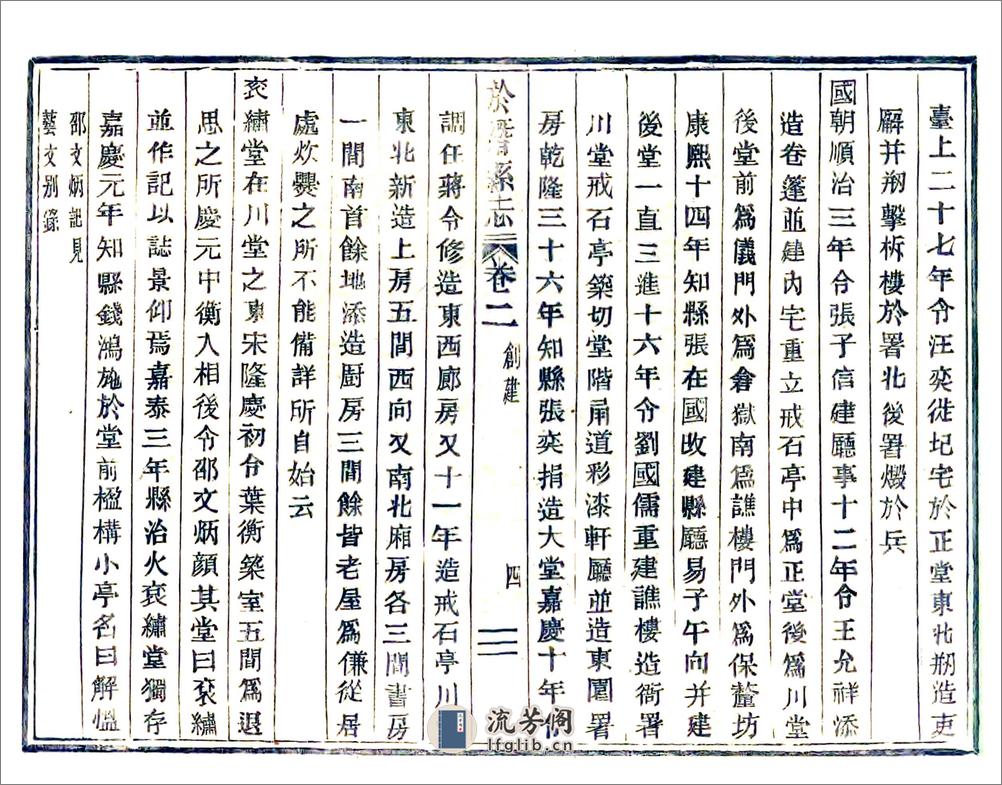 臺上二十七年令汪奕徙圮宅於正堂東北剏造吏
廨并剏擊柝樓於署北後署燬於兵
國朝順治三年令張子信建廳事十二年令王允祥添
造卷篷並建內宅重立戒石亭中爲正堂後爲川堂
後堂前爲儀門外爲倉獄南爲譙樓門外爲保釐坊
康熙十四年知縣張在國改建縣廳易子午向并建
後堂一直三進十六年令劉國儒重建譙樓造衙署
川堂戒石亭築切堂階甬道彩漆軒廳並造東圍署
房乾隆三十六年知縣張奕指造大堂嘉慶十年
於潛縣志 卷二 創建 四
調任蔣令修造東西廊房又十一年造戒石亭川
東北新造上房五間西向又南北廂房各三間書房
一間南首餘地添造厨房三間餘皆老屋爲傔從居
處炊爨之所不能備詳所自始云
衮繡堂在川堂之東宋隆慶初令葉衡築室五間爲退
思之所慶元中衡入相後令邵文炳顏其堂曰衮繡
並作記以誌景仰焉嘉泰三年縣治火衮繡堂獨存
嘉慶元年知縣錢鴻施於堂前楹構小亭名曰解慍
邵文炳記見
藝文別錄
流芳閣
lfglib.cn